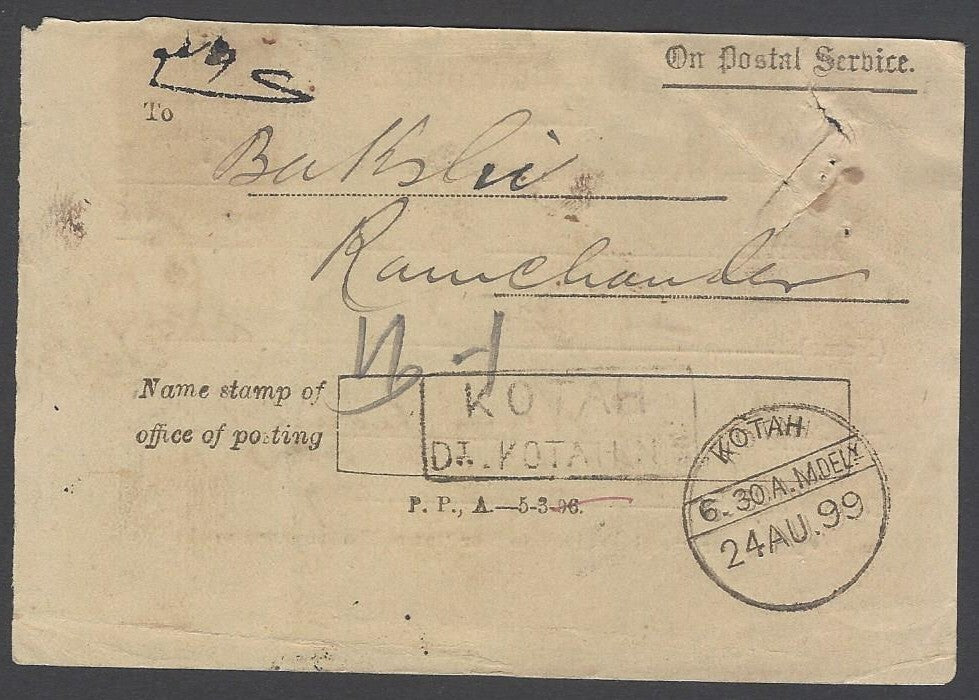 On Postal Service.
To
Bakshi
Ramchander
Name stamp of
office of posting
KOTAH
DT. KOTAH
P. P., A.—5-3-96.
KOTAH
6.30.A.M.DELY
24 AU. 99